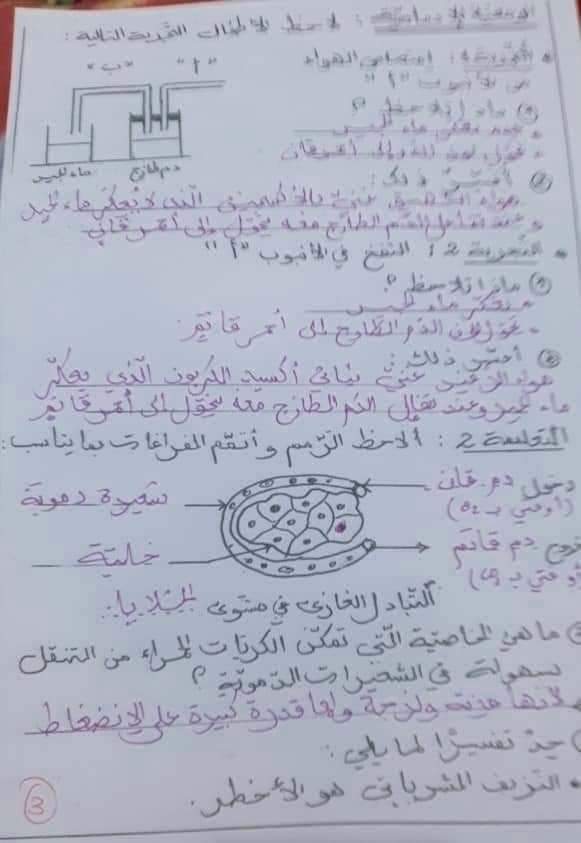 الوضعية الادماجية : لاحظ الأشكال التجريبية التالية :
• التجربة 1 : امتصاص الهواء
من الأنبوب "أ"
"أ" "ب"
ماء الجير
دم طازج
① ماذا تلاحظ ؟
• عدم تعكر ماء الجير
• تحول لون الدم إلى أحمر قان
② أفسر ذلك :
هواء الشهيق غني بالأكسجين الذي لا يعكر ماء الجير
و عند تفاعل الدم الطازج معه يتحول إلى أحمر قاني
• التجربة 2 : النفخ في الأنبوب "أ"
① ماذا تلاحظ ؟
• تعكر ماء الجير
• تحول لون الدم الطازج إلى أحمر قاتم .
② أفسر ذلك :
هواء الزفير غني بثاني أكسيد الكربون الذي يعكر
ماء الجير وعند تفاعل الدم الطازج معه يتحول إلى أحمر قاتم
التعليمة 2 : ألاحظ الرسم و أتمم الفراغات بما يناسب :
دخول دم قان
(أو غني بـ O₂)
شعيرة دموية
دم قاتم
خلية
التبادل الغازي في مستوى الخلايا .
ما هي الخاصية التي تمكن الكريات الحمراء من التنقل
بسهولة في الشعيرات الدموية ؟
لأنها مرنة ولزجة ولها قدرة كبيرة على الانضغاط
جد تفسيرا لما يلي :
• النزيف الشرياني هو الأخطر .
3